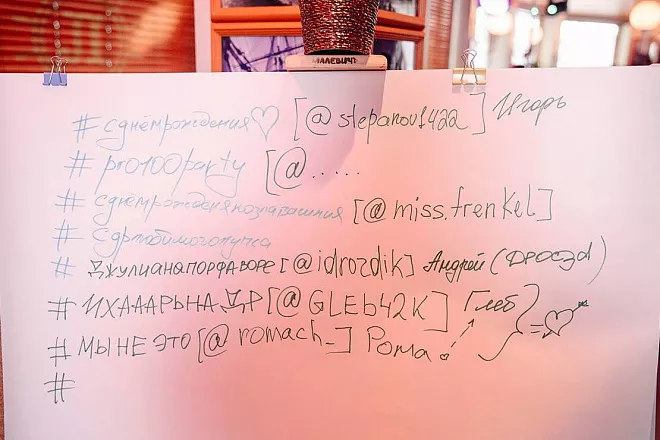 МАЛЕВИЧЪ
# сднёмрождения♡ [@stepanov1422] Игорь
# pro100party [@.....
[@miss.frenkel]
# сдрлюбимогопупса
# Джулианапорфаворе [@idrozdik] Андрей (DРОЗД)
# ИХАААРЬНАДР [@GLEb42K] Глеб
# МЫ НЕ ЭТО [@romach_] Рома
#